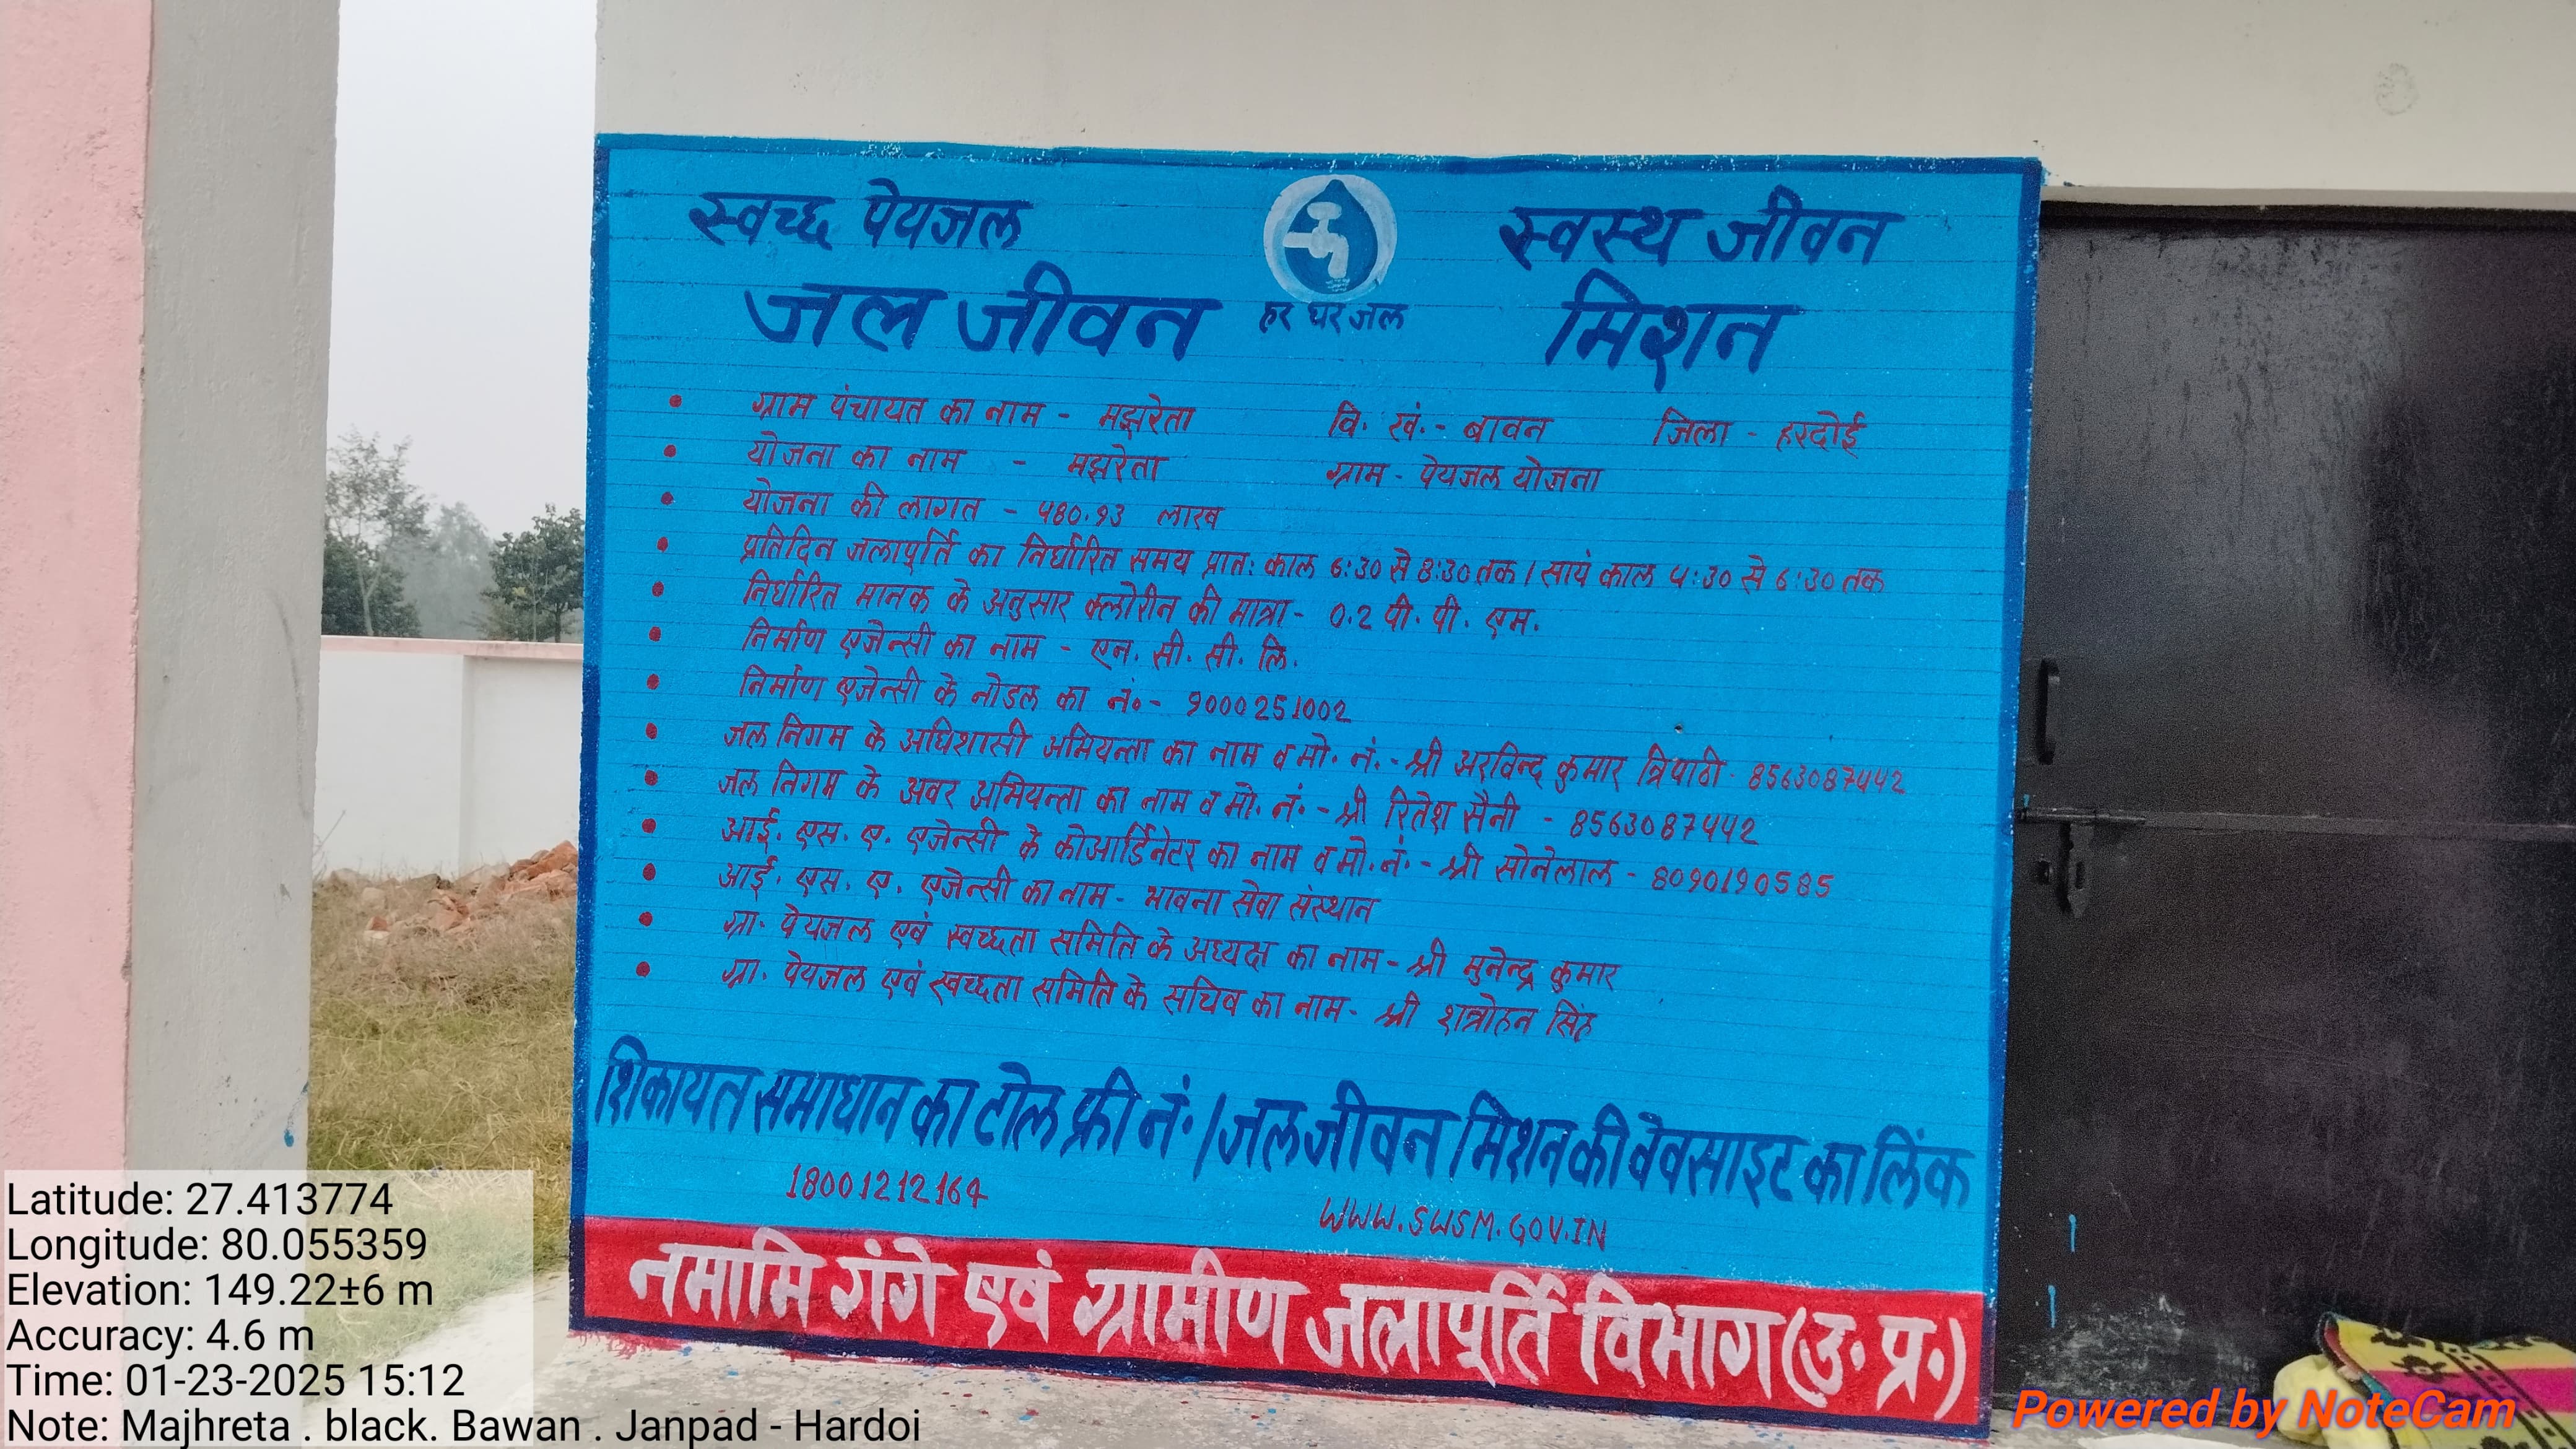 स्वच्छ पेयजल स्वस्थ जीवन
जल जीवन हर घर जल मिशन
• ग्राम पंचायत का नाम - मझरेता वि. खं. - बावन जिला - हरदोई
• योजना का नाम - मझरेता ग्राम - पेयजल योजना
• योजना की लागत - ५80.93 लाख
• प्रतिदिन जलापूर्ति का निर्धारित समय प्रात: काल 6:30 से 8:30 तक / सायं काल 4:30 से 6:30 तक
• निर्धारित मानक के अनुसार क्लोरीन की मात्रा - 0.2 पी. पी. एम.
• निर्माण एजेन्सी का नाम - एन. सी. सी. लि.
• निर्माण एजेन्सी के नोडल का नं० - 9000251002
• जल निगम के अधिशासी अभियन्ता का नाम व मो. नं. - श्री अरविन्द कुमार त्रिपाठी - 8563087442
• जल निगम के अवर अभियन्ता का नाम व मो. नं. - श्री रितेश सैनी - 8563087442
• आई. एस. ए. एजेन्सी के कोआर्डिनेटर का नाम व मो. नं. - श्री सोनेलाल - 8090190585
• आई. एस. ए. एजेन्सी का नाम - भावना सेवा संस्थान
• ग्रा. पेयजल एवं स्वच्छता समिति के अध्यक्ष का नाम - श्री मुनेन्द्र कुमार
• ग्रा. पेयजल एवं स्वच्छता समिति के सचिव का नाम - श्री शत्रोहन सिंह
शिकायत समाधान का टोल फ्री नं. / जल जीवन मिशन की वेवसाइट का लिंक
18001212164 WWW.SWSM.GOV.IN
नमामि गंगे एवं ग्रामीण जलापूर्ति विभाग (उ. प्र.)
Latitude: 27.413774
Longitude: 80.055359
Elevation: 149.22±6 m
Accuracy: 4.6 m
Time: 01-23-2025 15:12
Note: Majhreta . black. Bawan . Janpad - Hardoi
Powered by NoteCam